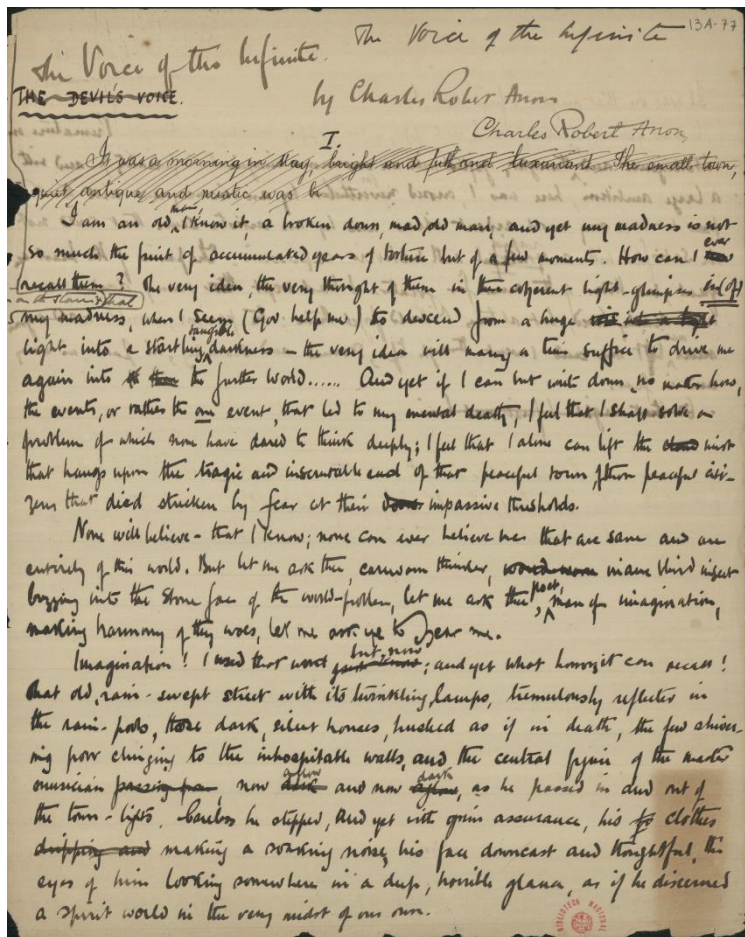 13A-77
The Voice of the Infinite
The Voice of the Infinite.
THE DEVIL'S VOICE.
by Charles Robert Anon
Charles Robert Anon
I.
It was a morning in May, bright and full and luxuriant. The small town,
quiet, antique, and rustic was b
I am an old man, I know it, a broken down, mad, old man, and yet my madness is not
so much the fruit of accumulated years of torture but of a few moments. How can I ever
recall them? The very idea, the very thought of them in the coherent light-glimpses in (of)
my madness, when I seem (God help me) to descend from a huge
light into a startling tangible darkness — the very idea will many a time suffice to drive me
again into the further world...... And yet if I can but write down, no matter how,
the events, or rather the one event, that led to my mental death, I feel that I shall solve a
problem of which none have dared to think deeply; I feel that I alone can lift the cloud mist
that hangs upon the tragic and inscrutable end of that peaceful town of peaceful citi-
zens that died stricken by fear at their impassive thresholds.
None will believe - that I know; none can ever believe me that are sane and are
entirely of this world. But let me ask thee, careworn thinker, inane blind insect
buzzing into the stone face of the world-problem, let me ask thee, poet, man of imagination,
making harmony of thy woes, let me ask ye to hear me.
Imagination! I used that word but now; and yet what horror it can recall!
That old, rain-swept street with its twinkling lamps, tremulously reflected in
the rain-pools, those dark, silent houses, hushed as if in death, the few shiver-
ing poor clinging to the inhospitable walls, and the central figure of the master
musician passing, now dark aglow and now aglow dark, as he passed in and out of
the town-lights. Careless he stepped, and yet with grim assurance, his clothes
dripping and making a soaking noise, his face downcast and thoughtful, the
eyes of him looking somewhere in a deep, horrible glance, as if he discerned
a spirit world in the very midst of our own.
BIBLIOTECA NACIONAL